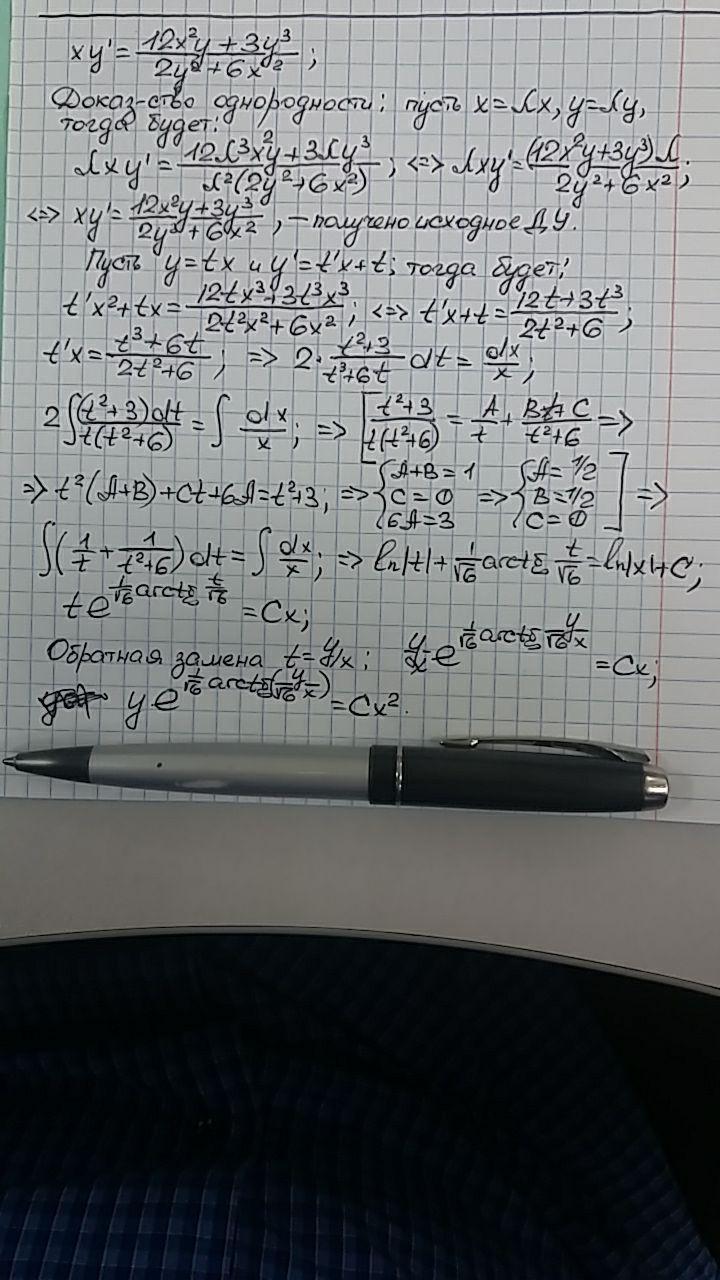 xy' = (12x²y + 3y³)/(2y² + 6x²);
Доказ-ство однородности: пусть x = λx, y = λy,
тогда будет:
λxy' = (12λ³x²y + 3λy³)/(λ²(2y² + 6x²)); <=> λxy' = ((12x²y + 3y³)λ)/(2y² + 6x²);
<=> xy' = (12x²y + 3y³)/(2y² + 6x²), – получено исходное ДУ.
Пусть y = tx и y' = t'x + t; тогда будет:
t'x² + tx = (12tx³ + 3t³x³)/(2t²x² + 6x²); <=> t'x + t = (12t + 3t³)/(2t² + 6);
t'x = (t³ + 6t)/(2t² + 6); => 2·(t² + 3)/(t³ + 6t) dt = dx/x;
2∫(t² + 3)dt/(t(t² + 6)) = ∫dx/x; => [(t² + 3)/(t(t² + 6)) = A/t + (Bt + C)/(t² + 6) =>
=> t²(A + B) + Ct + 6A = t² + 3; => {A + B = 1, C = 0, 6A = 3 => {A = 1/2, B = 1/2, C = 0] =>
∫(1/t + 1/(t² + 6))dt = ∫dx/x; => ln|t| + 1/√6 arctg t/√6 = ln|x| + C;
te^(1/√6 arctg t/√6) = Cx;
Обратная замена t = y/x; y/x e^(1/√6 arctg 1/√6 y/x) = Cx;
ye^(1/√6 arctg(1/√6 y/x)) = Cx².